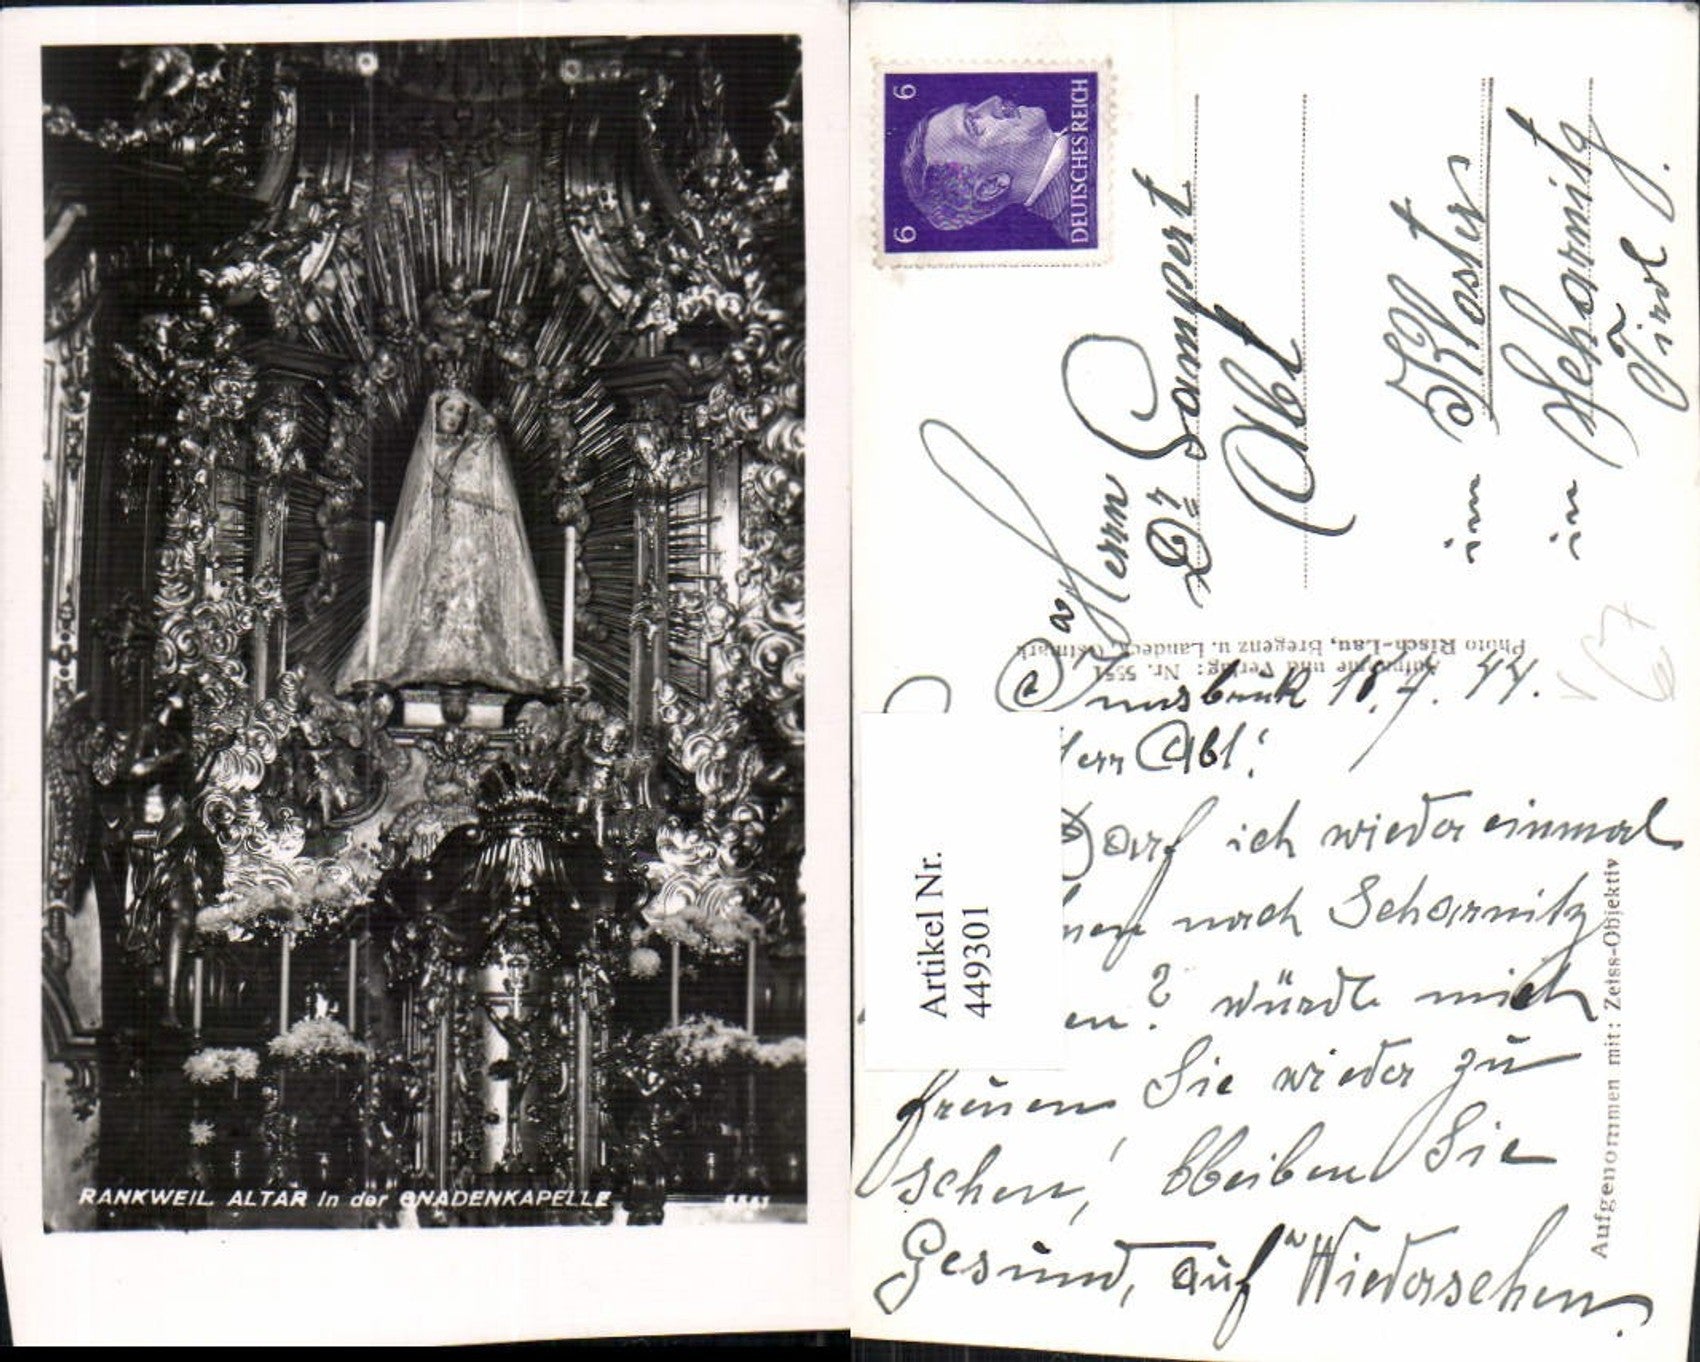 RANKWEIL. ALTAR in der GNADENKAPELLE
5551
6 6
DEUTSCHES REICH
Herrn
Dr Lampert
Abt
im Kloster
in Scharnitz
Tirol.
Photo Risch-Lau, Bregenz u. Landeck, Ostmark
Aufnahme und Verlag: Nr. 5551
Innsbruck 18.7.44.
Herr Abt!
Darf ich wieder einmal
nach Scharnitz
en? würde mich
freuen Sie wieder zu
sehen, bleiben Sie
Gesund, auf Wiedersehen.
Artikel Nr.
449301
Aufgenommen mit: Zeiss-Objektiv
67